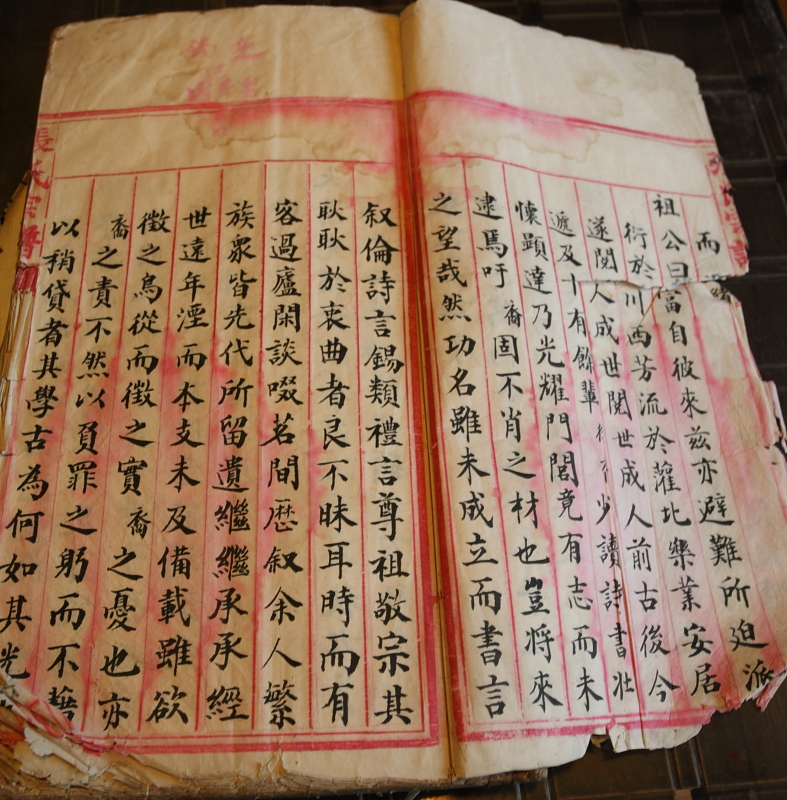 而
祖公曰富自彼來茲亦避難所迫派
衍於川西芳流於灌北樂業安居
遂閱人成世閱世成人前古後今
遞及十有餘輩 少讀詩書壯
懷顯達乃光耀門閭竟有志而未
逮焉吁裔固不肖之材也豈將來
之望哉然功名雖未成立而書言
叙倫詩言錫類禮言尊祖敬宗其
耿耿於衷曲者良不昧耳時而有
客過廬閑談啜茗間歷叙余人繁
族眾皆先代所留遺繼繼承承經
世遠年湮而本支未及備載雖欲
徵之烏從而徵之實裔之憂也亦
裔之責不然以負罪之躬而不藉
以稍貸者其學古為何如其光
張氏宗譜